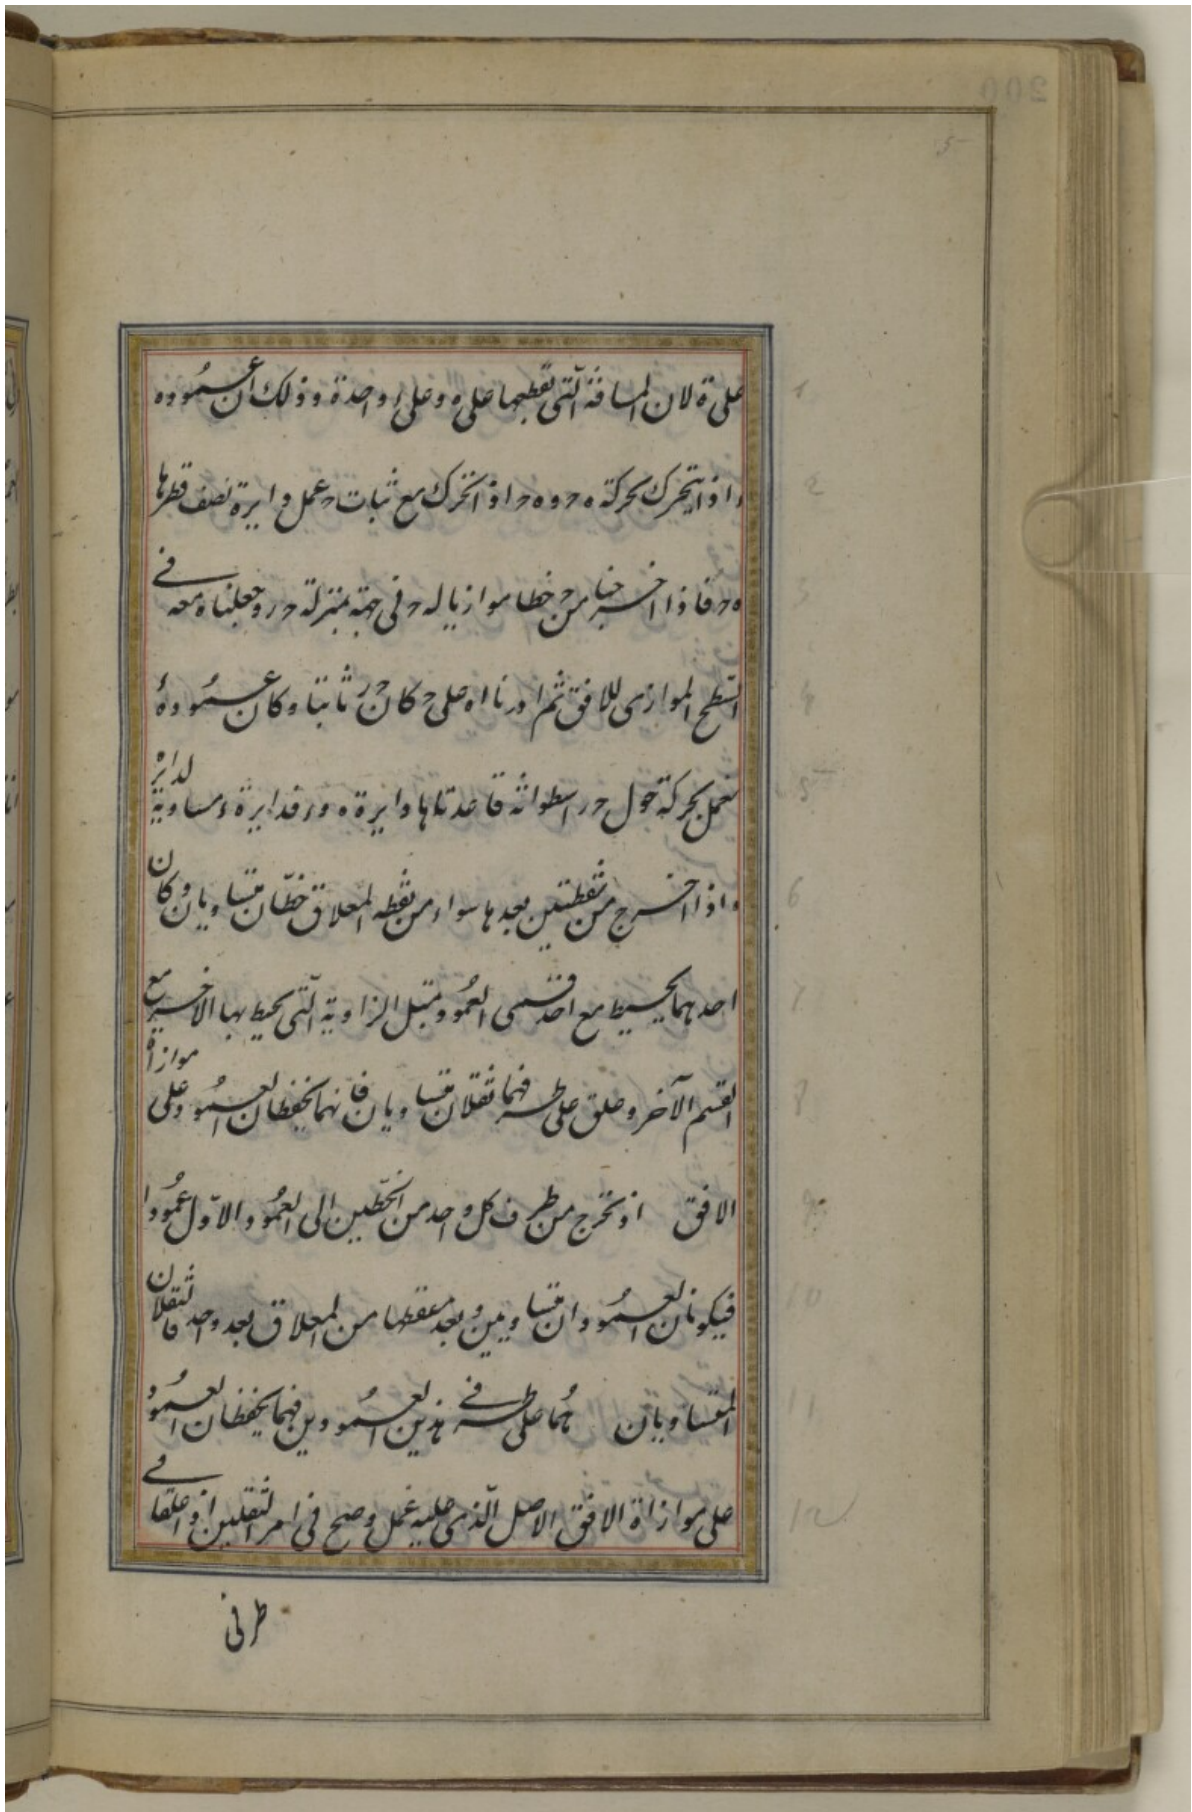 على ة لان المسافة التى تقطعها على ه وعلى ء واحدة وذلك ان عمود ه
واذا يتحرك بحركة ه ح و ه ح اذا تحرك مع ثبات ح عمل دايرة نصف قطرها
ه ح فاذا اخرجنا من ح خطا موازيا له ح فى جهة بمنزلة ح ر وجعلناه معه فى
السطح الموازى للافق ثم ادرناه على ح كان ح ر ثابتا وكان عمود ه ء
تعمل بحركة حول ح ر اسطوانة قاعدتاها دايرة ه و ء فدايرة ء مساوية لدايرة
واذا اخرج من نقطتين بعدها سواء من نقطه المعلاق خطّان متساويان وكان
احدهما يحيط مع احد قسمى العمود مثل الزاوية التى يحيط بها الاخير مع
القسم الآخر وعلق على طرفهما ثقلان متساويان فانهما يحفظان العمود على موازاة
الافق اذ تخرج من طرف كل واحد من الخطّين الى العمود الاوّل عمودا
فيكونان العمودان متساويين وبعد مسقطها من المعلاق بعد واحد فالثقلان
المتساويان هُما على طرفى هذين العمودين فهما يحفظان العمود
على موازاة الافق الاصل الّذى عليه عمل وصح فى امر الثقلين اذا علقا فى
طرفى
200
5
1
2
3
4
5
6
7
8
9
10
11
12